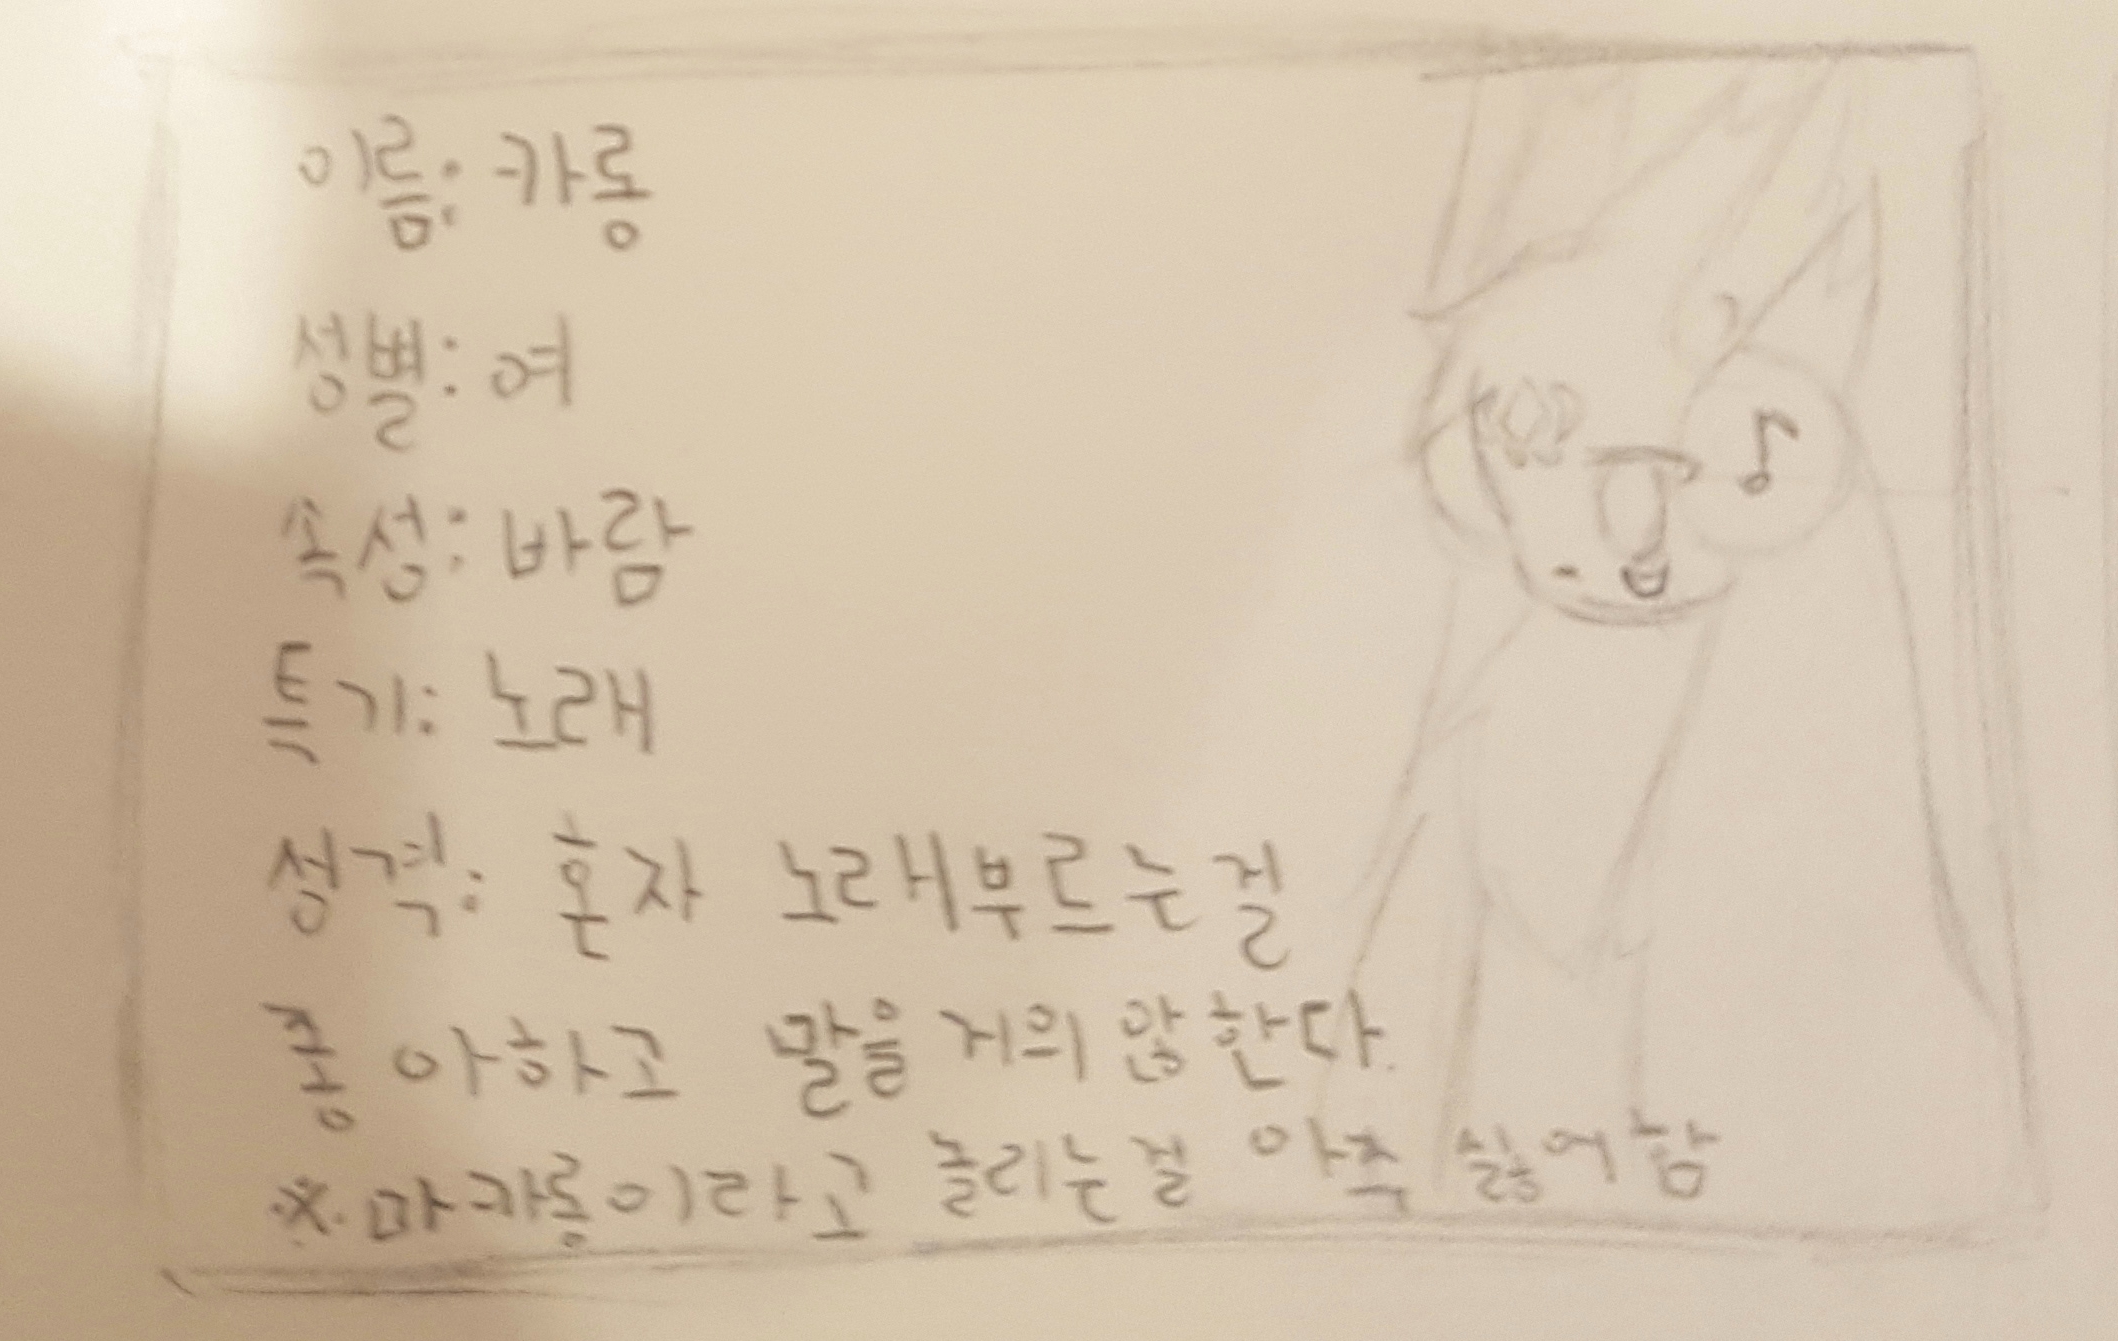 이름: 카롱
성별: 여
속성: 바람
특기: 노래
성격: 혼자 노래부르는걸
종아하고 말을 거의 않한다.
※마카롱이라고 놀리는걸 아주 싫어함